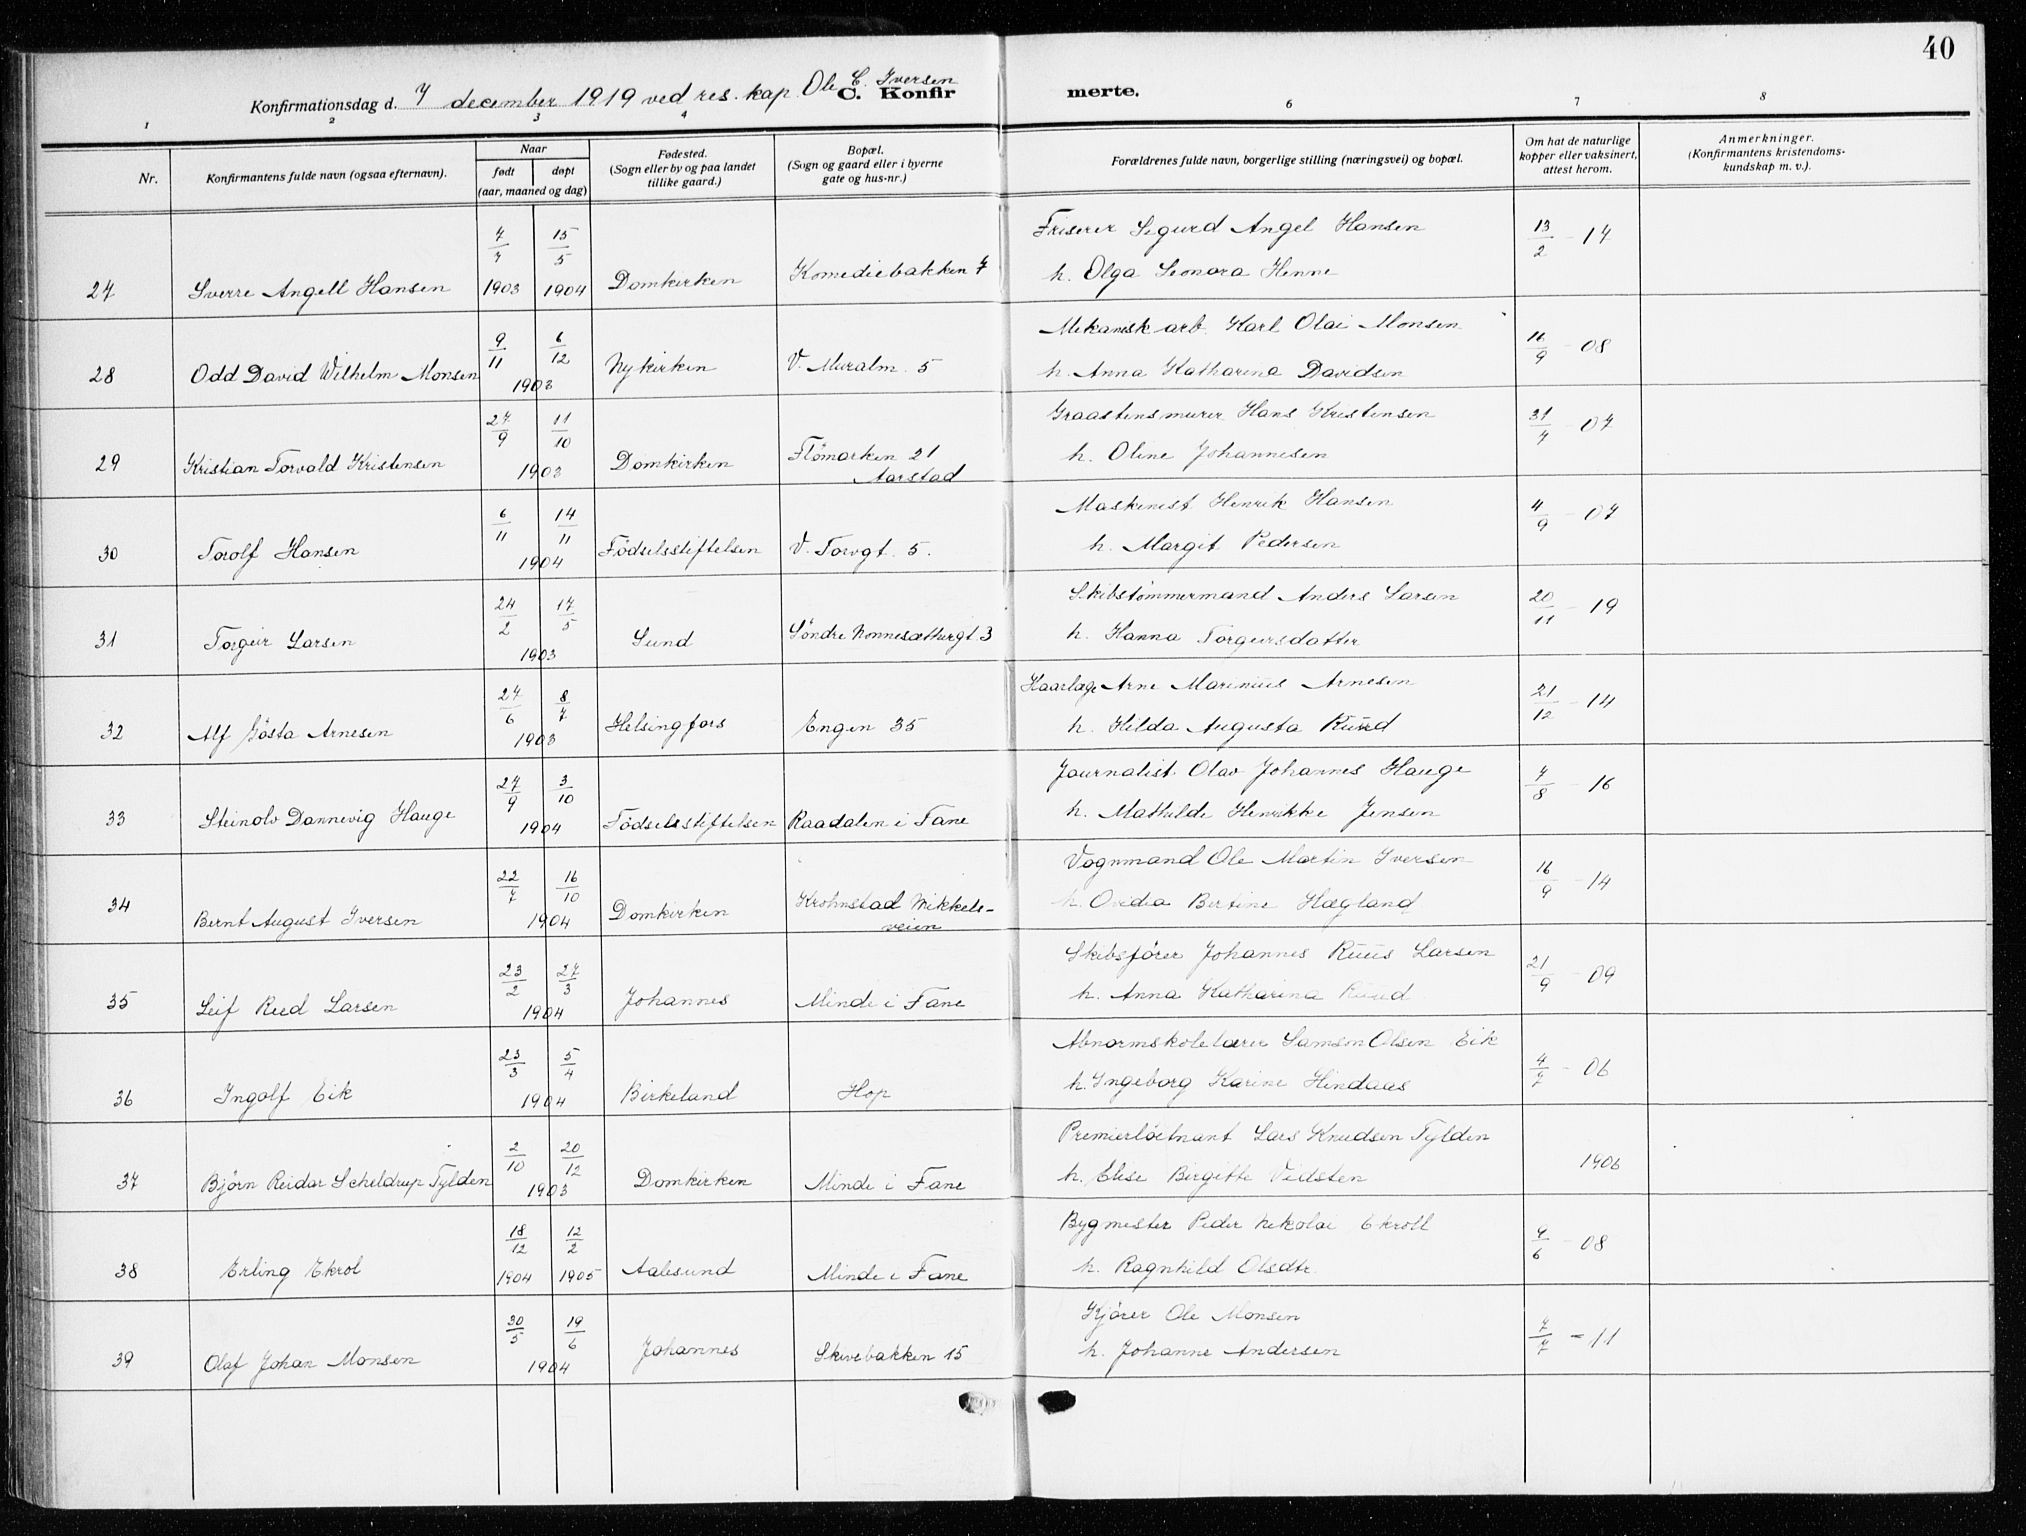 40
Konfirmationsdag d. 7 december 1919 ved res. kap. Ole C. Iversen
C. Konfirmerte.
1 2 3 4 6 7 8
Nr.
Konfirmantens fulde navn (ogsaa efternavn).
Naar
født døpt
(aar, maaned og dag)
Fødested.
(Sogn eller by og paa landet
tillike gaard.)
Bopæl.
(Sogn og gaard eller i byerne
gate og hus-nr.)
Forældrenes fulde navn, borgerlige stilling (næringsvei) og bopæl.
Om hat de naturlige
kopper eller vaksinert,
attest herom.
Anmerkninger.
(Konfirmantens kristendoms-
kundskap m. v.).
27 Sverre Angell Hansen 7/7 1903 15/5 1904 Domkirken Komediebakken 7 Friserer Sigurd Angel Hansen 13/2 - 17
h. Olga Leonora Henne
28 Odd David Wilhelm Monsen 9/11 6/12 1903 Nykirken V. Muralm. 5 Mekanisk arb. Karl Olai Monsen 16/9 - 08
h. Anna Katharina Davidsen
29 Kristian Torvald Kristensen 27/9 11/10 1903 Domkirken Flømarken 21 Graastensmurer Hans Kristensen 31/7 - 07
Aarstad h. Oline Johannesen
30 Torolf Hansen 6/11 14/11 1904 Fødselsstiftelsen V. Torvgt. 5. Maskinist Henrik Hansen 4/9 - 07
h. Margit Pedersen
31 Torgeir Larsen 24/2 17/5 1903 Sund Søndre Nonnesætturgt 3 Skibstømmermand Anders Larsen 20/11 - 19
h. Hanna Torgeirsdatter
32 Alf Gösta Arnesen 27/6 8/7 1903 Helsingfors Engen 35 Haarlæge Arne Marinius Arnesen 21/12 - 14
h. Hilda Augusta Ruud
33 Steinolv Dannevig Hauge 27/9 3/10 1904 Fødselsstiftelsen Raadalen i Fane Journalist Olav Johannes Hauge 7/8 - 16
h. Mathilde Henrikke Jensen
34 Bernt August Iversen 22/7 16/10 1904 Domkirken Krohnstad Mikkels- Vognmand Ole Martin Iversen 16/9 - 14
veien h. Ovidia Bertine Hægland
35 Leif Rud Larsen 23/2 27/3 1904 Johannes Minde i Fane Skibsfører Johannes Ruus Larsen 21/9 - 09
h. Anna Katharina Ruud
36 Ingolf Eik 23/3 5/4 1904 Birkeland Hop Abnormskolelærer Samson Olsen Eik 4/7 - 06
h. Ingeborg Karine Hindaas
37 Bjørn Reidar Scheldrup Tylden 2/10 20/12 1903 Domkirken Minde i Fane Premierløitnant Lars Knudsen Tylden 1906
h. Elise Birgitte Vidsten
38 Erling Ekrol 18/12 1904 12/2 1905 Aalesund Minde i Fane Bygmester Peder Nikolai Ekroll 4/6 - 08
h. Ragnhild Olsdtr.
39 Olaf Johan Monsen 30/5 19/6 1904 Johannes Skivebakken 15 Kjører Ole Monsen 7/7 - 11
h. Johanne Andersen